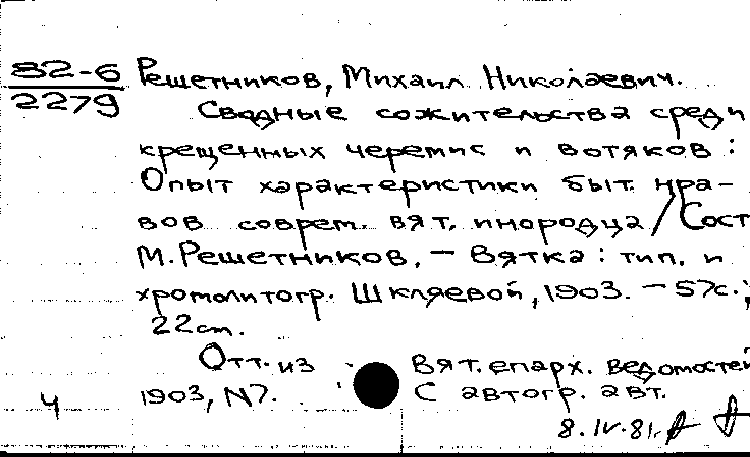 82-6
2279
Решетников, Михаил Николаевич.
Сводные сожительства среди
крещенных черемис и вотяков :
Опыт характеристики быт. нра-
вов соврем. вят. инородца / Сост
М. Решетников. - Вятка : тип. и
хромолитогр. Шкляевой, 1903. - 57с.;
22cm.
Отт. из Вят. епарх. ведомостей
1903, N7. С автогр. авт.
4
8.IV.81.